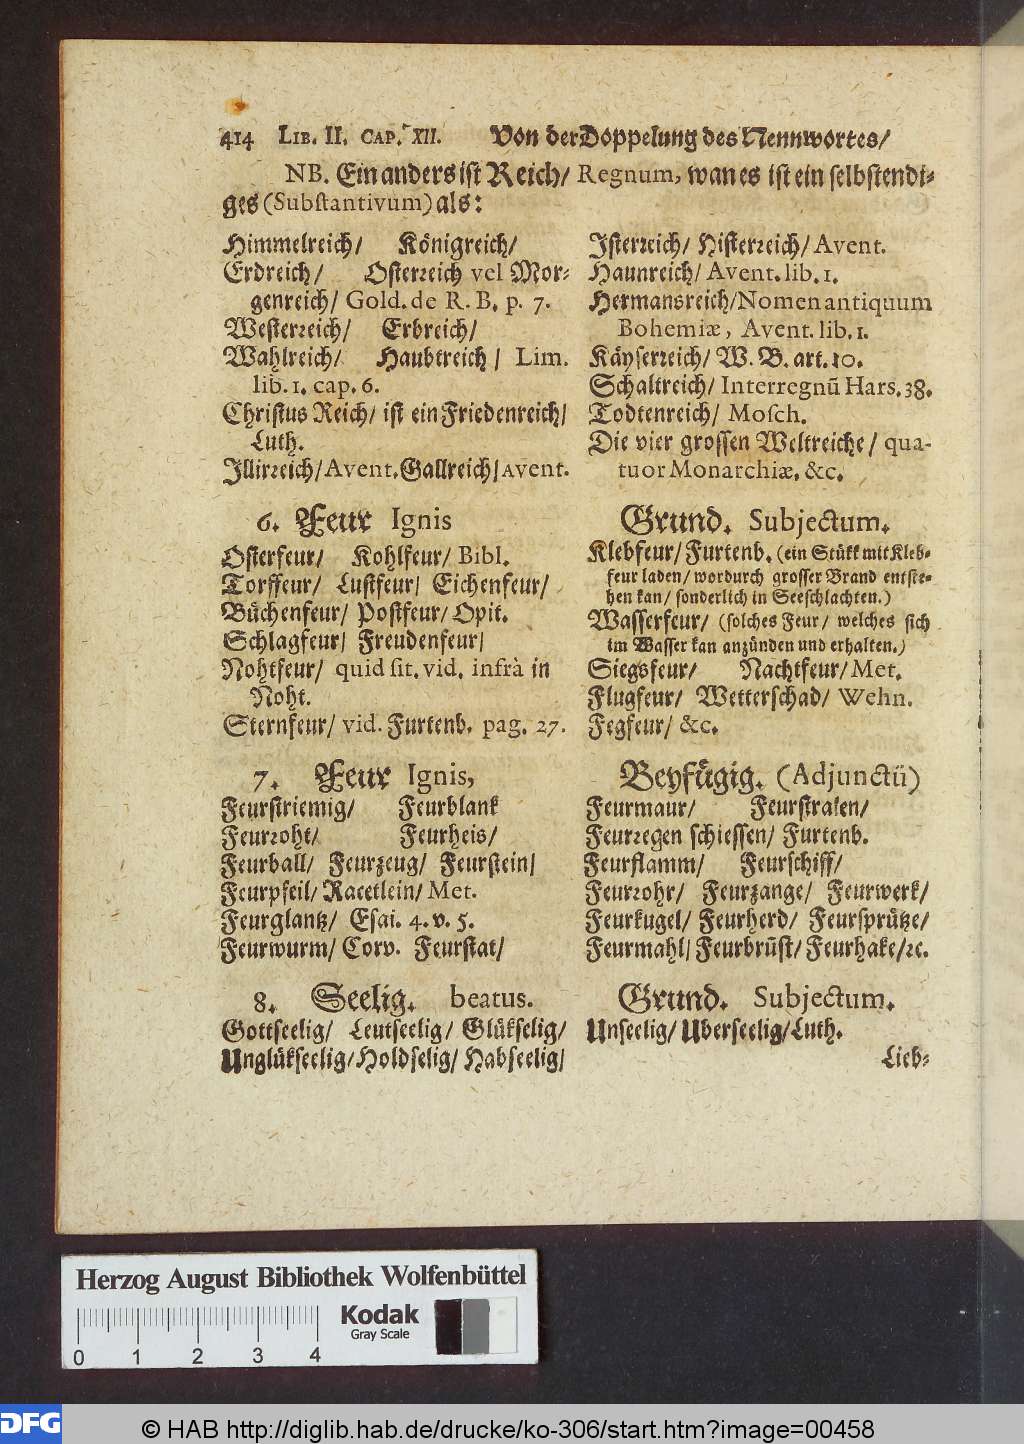 414 LIB. II. CAP. XII. Von der Doppelung des Nennwortes/
NB. Ein anders ist Reich/ Regnum, wan es ist ein selbstendi-
ges (Substantivum) als:
Himmelreich/ Königreich/
Erdreich/ Osterreich vel Mor-
genreich/ Gold. de R. B. p. 7.
Westerreich/ Erbreich/
Wahlreich/ Haubtreich/ Lim.
lib. 1. cap. 6.
Christus Reich/ ist ein Friedenreich/
Luth.
Illirreich/ Avent. Gallreich/ Avent.
Isterreich/ Histerreich/ Avent.
Haunreich/ Avent. lib. 1.
Hermansreich/ Nomen antiquum
Bohemiæ, Avent. lib. 1.
Käyserreich/ W. B. art. 10.
Schaltreich/ Interregnũ Hars. 38.
Todtenreich/ Mosch.
Die vier grossen Weltreiche/ qua-
tuor Monarchiæ, &c.
6. Feur Ignis
Grund. Subjectum.
Osterfeur/ Kohlfeur/ Bibl.
Torffeur/ Lustfeur/ Eichenfeur/
Büchenfeur/ Postfeur/ Opit.
Schlagfeur/ Freudenfeur/
Nohtfeur/ quid sit. vid. infrà in
Noht.
Sternfeur/ vid. Furtenb. pag. 27.
Klebfeur/ Furtenb. (ein Stükk mit Kleb-
feur laden/ wordurch grosser Brand entste-
hen kan/ sonderlich in Seeschlachten.)
Wasserfeur/ (solches Feur/ welches sich
im Wasser kan anzünden und erhalten.)
Siegsfeur/ Nachtfeur/ Met.
Flugfeur/ Wetterschad/ Wehn.
Fegfeur/ &c.
7. Feur Ignis,
Beyfügig. (Adjunctũ)
Feurstriemig/ Feurblank
Feurroht/ Feurheis/
Feurball/ Feurzeug/ Feurstein/
Feurpfeil/ Racetlein/ Met.
Feurglantz/ Esai. 4. v. 5.
Feurwurm/ Corv. Feurstat/
Feurmaur/ Feurstralen/
Feurregen schiessen/ Furtenb.
Feurflamm/ Feurschiff/
Feurrohr/ Feurzange/ Feurwerk/
Feurkugel/ Feurherd/ Feursprütze/
Feurmahl/ Feurbrũst/ Feurhake/ ꝛc.
8. Seelig. beatus.
Grund. Subjectum.
Gottseelig/ Leutseelig/ Glükselig/
Unglükseelig/ Holdselig/ Habseelig/
Unseelig/ Uberseelig/ Luth.
Lieb-
Herzog August Bibliothek Wolfenbüttel
Kodak
Gray Scale
0 1 2 3 4
DFG
© HAB http://diglib.hab.de/drucke/ko-306/start.htm?image=00458